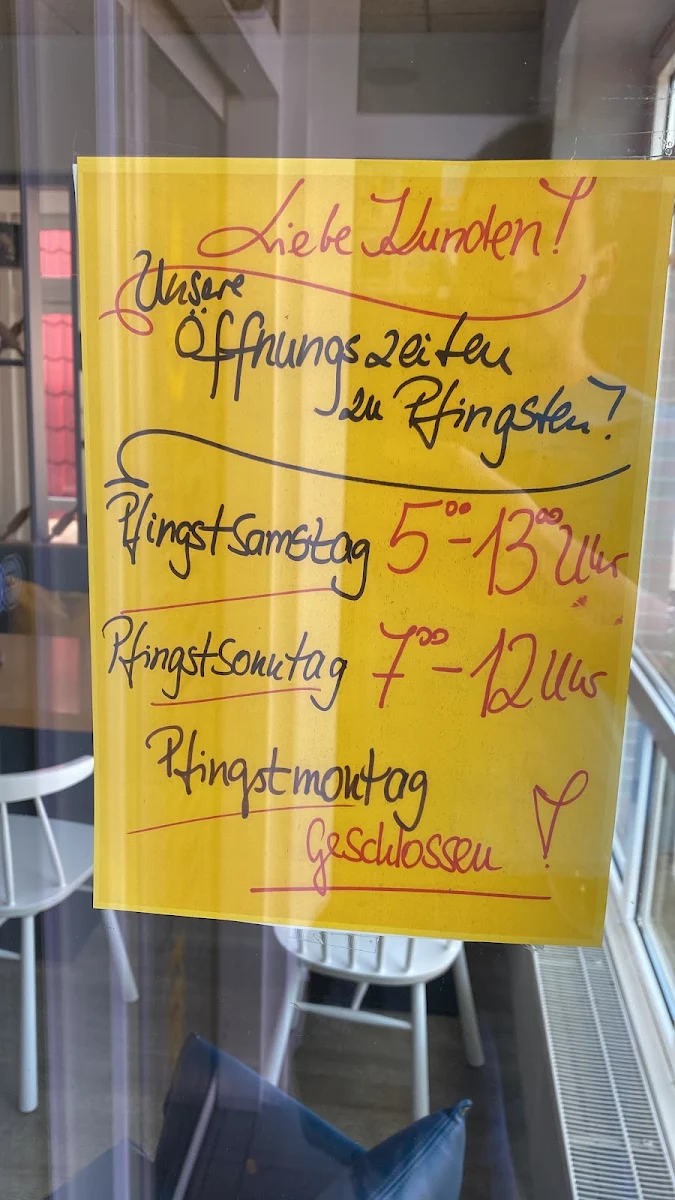 Liebe Kunden!
Unsere
Öffnungszeiten
zu Pfingsten!
Pfingstsamstag 5⁰⁰-13⁰⁰ Uhr
Pfingstsonntag 7⁰⁰-12 Uhr
Pfingstmontag
Geschlossen!